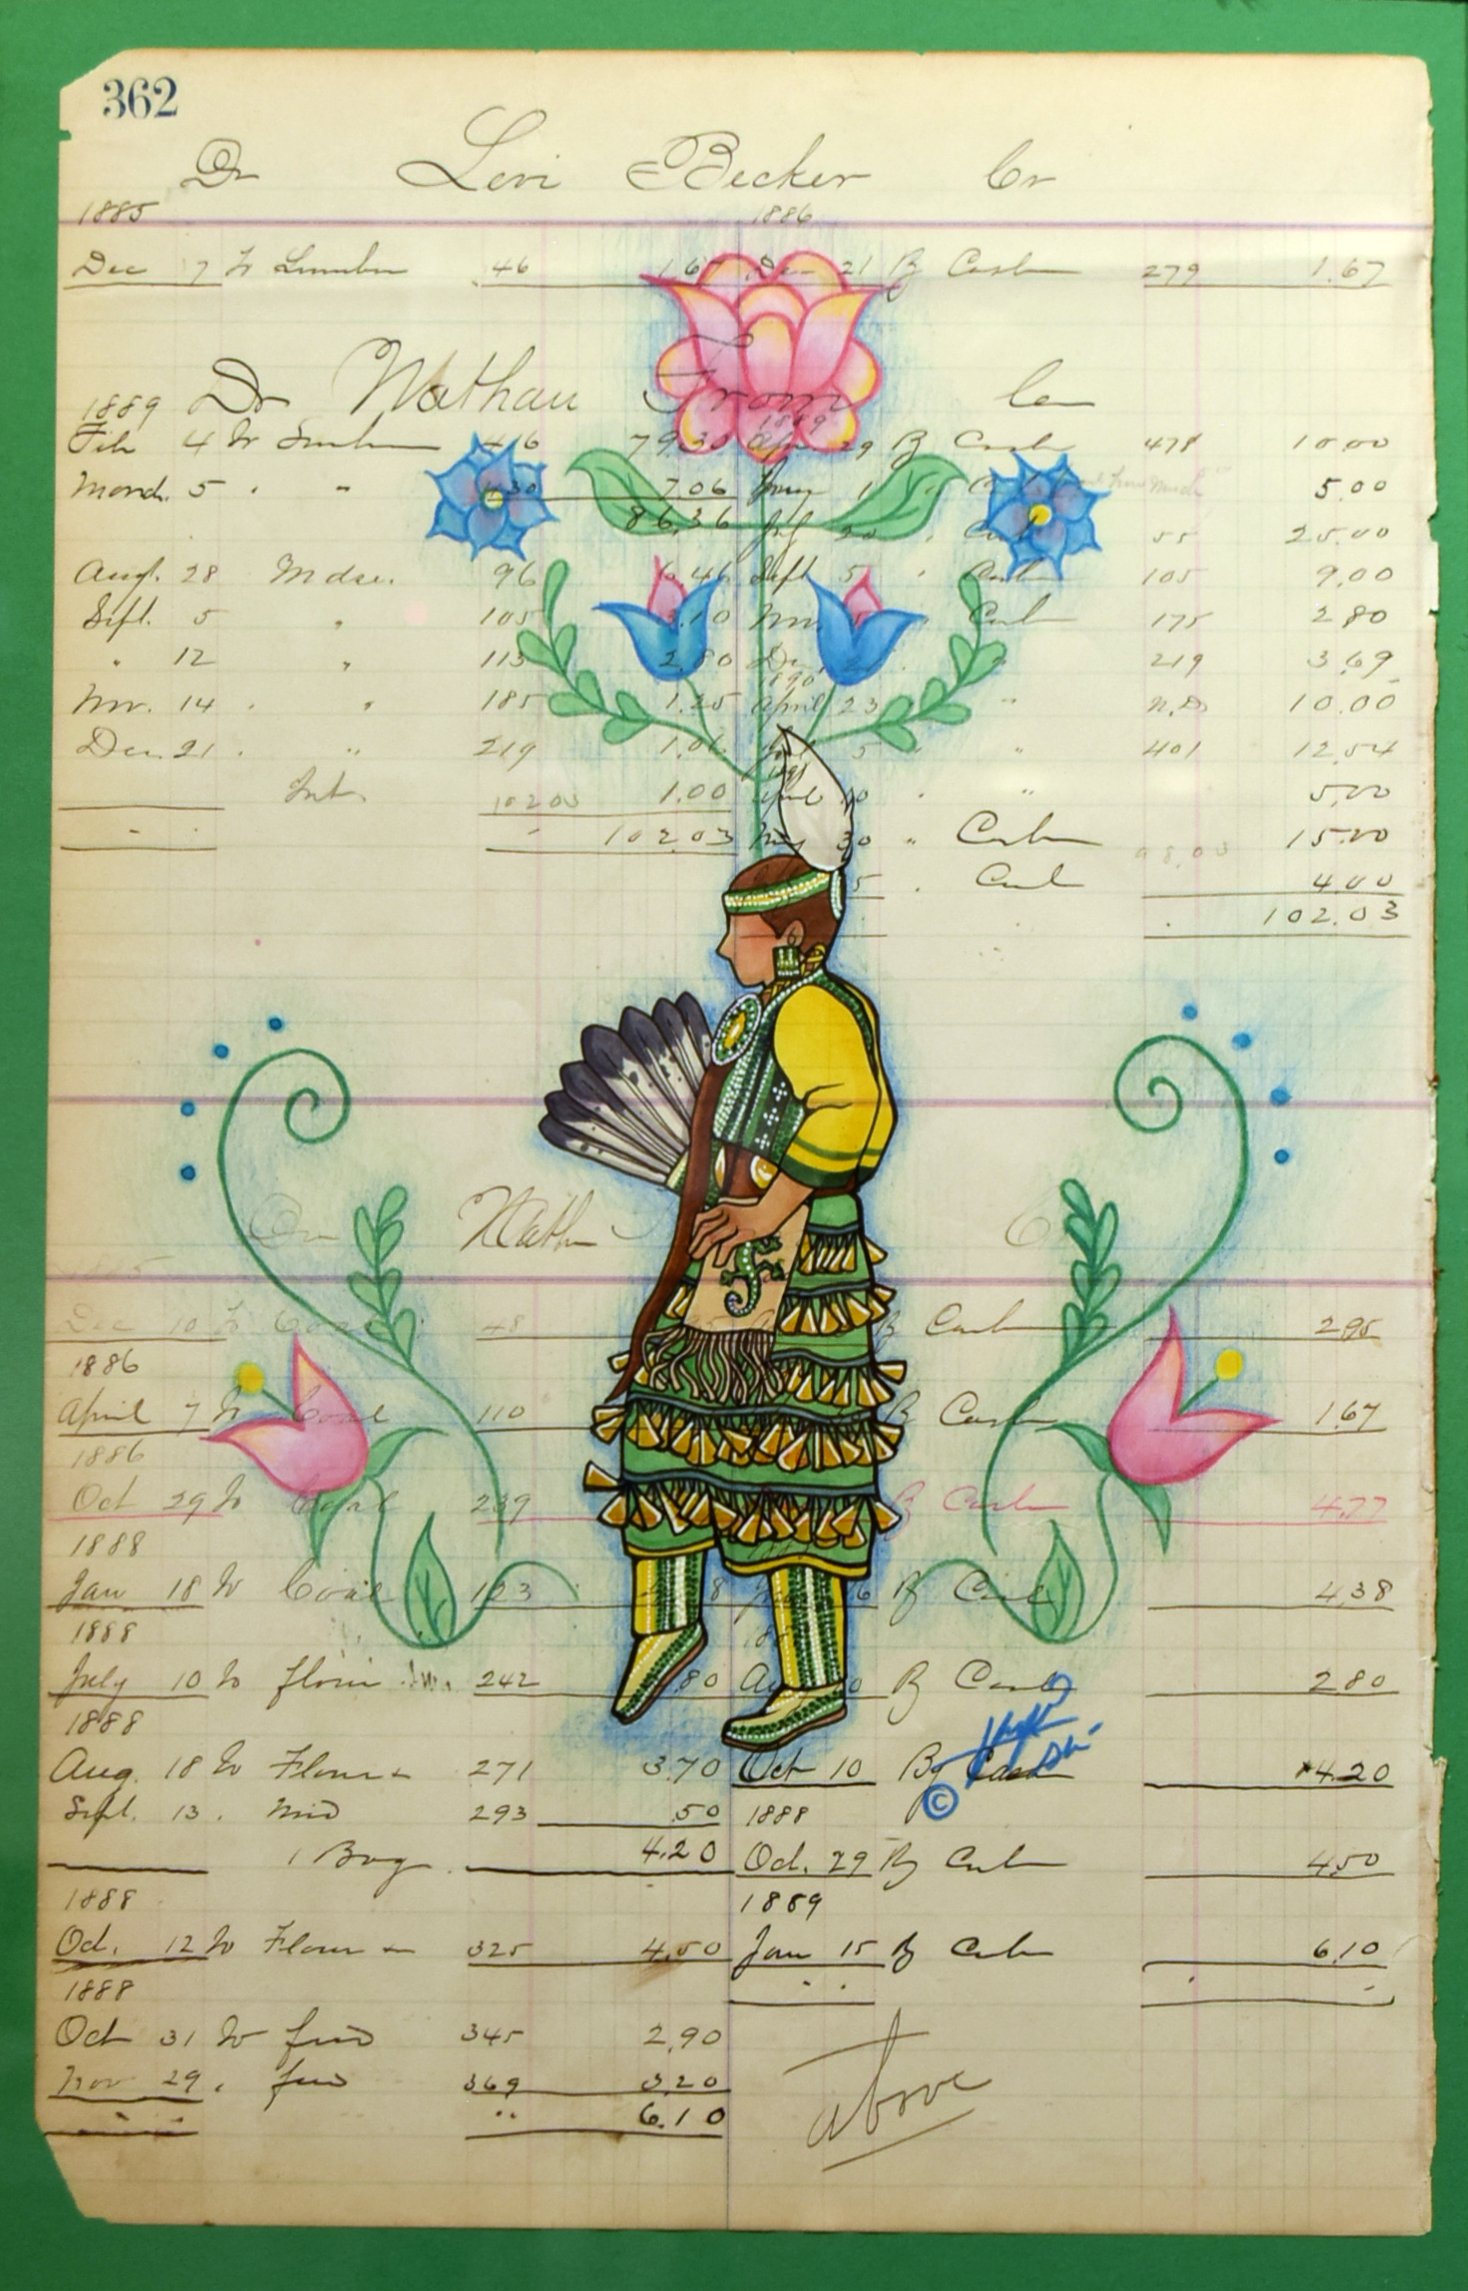 362
Dr Levi Becker Cr
1885 1886
Dec 7 To Lumber 46 1.67 Dec 21 By Cash 279 1.67
Dr Nathan From Cr
1889 1889
Feb 4 To Lumber 416 79.30 Apr 29 By Cash 478 10.00
March 5 " " 430 7.06 May 1 " 5.00
86.36 Jul 20 " Cash 55 25.00
Aug. 28 Mdse. 96 6.46 Sept 5 " Cash 105 9.00
Sept. 5 " 105 3.10 Nov. " Cash 175 2.80
" 12 " 113 2.80 Dec 21 " " 219 3.69
1890
Nov. 14 " " 185 1.25 April 23 " " 10.00
Dec. 21 " " 219 1.06 5 " " 401 12.54
Int. 102.03 1.00 10 " " 5.00
102.03 30 " Cash 98.03 15.00
5 " Cash 4.00
102.03
Dr Nathan Cr
Dec 10 To Coal 48 By Cash 2.95
1886
April 7 To Coal 110 By Cash 1.67
1886
Oct 29 To Coal 239 By Cash 4.77
1888
Jan 18 To Coal 123 By Cash 4.38
1888
July 10 To flour 242 2.80 By Cash 2.80
1888
Aug. 18 To Flour 271 3.70 Oct 10 By Cash 4.20
©
Sept. 13 . 293 .50 1888
1 Bag 4.20 Oct. 29 By Cash 4.50
1888 1889
Oct. 12 To Flour 325 4.50 Jan 15 By Cash 6.10
1888
Oct 31 To feed 345 2.90
Nov 29 . feed 369 3.20
6.10
above